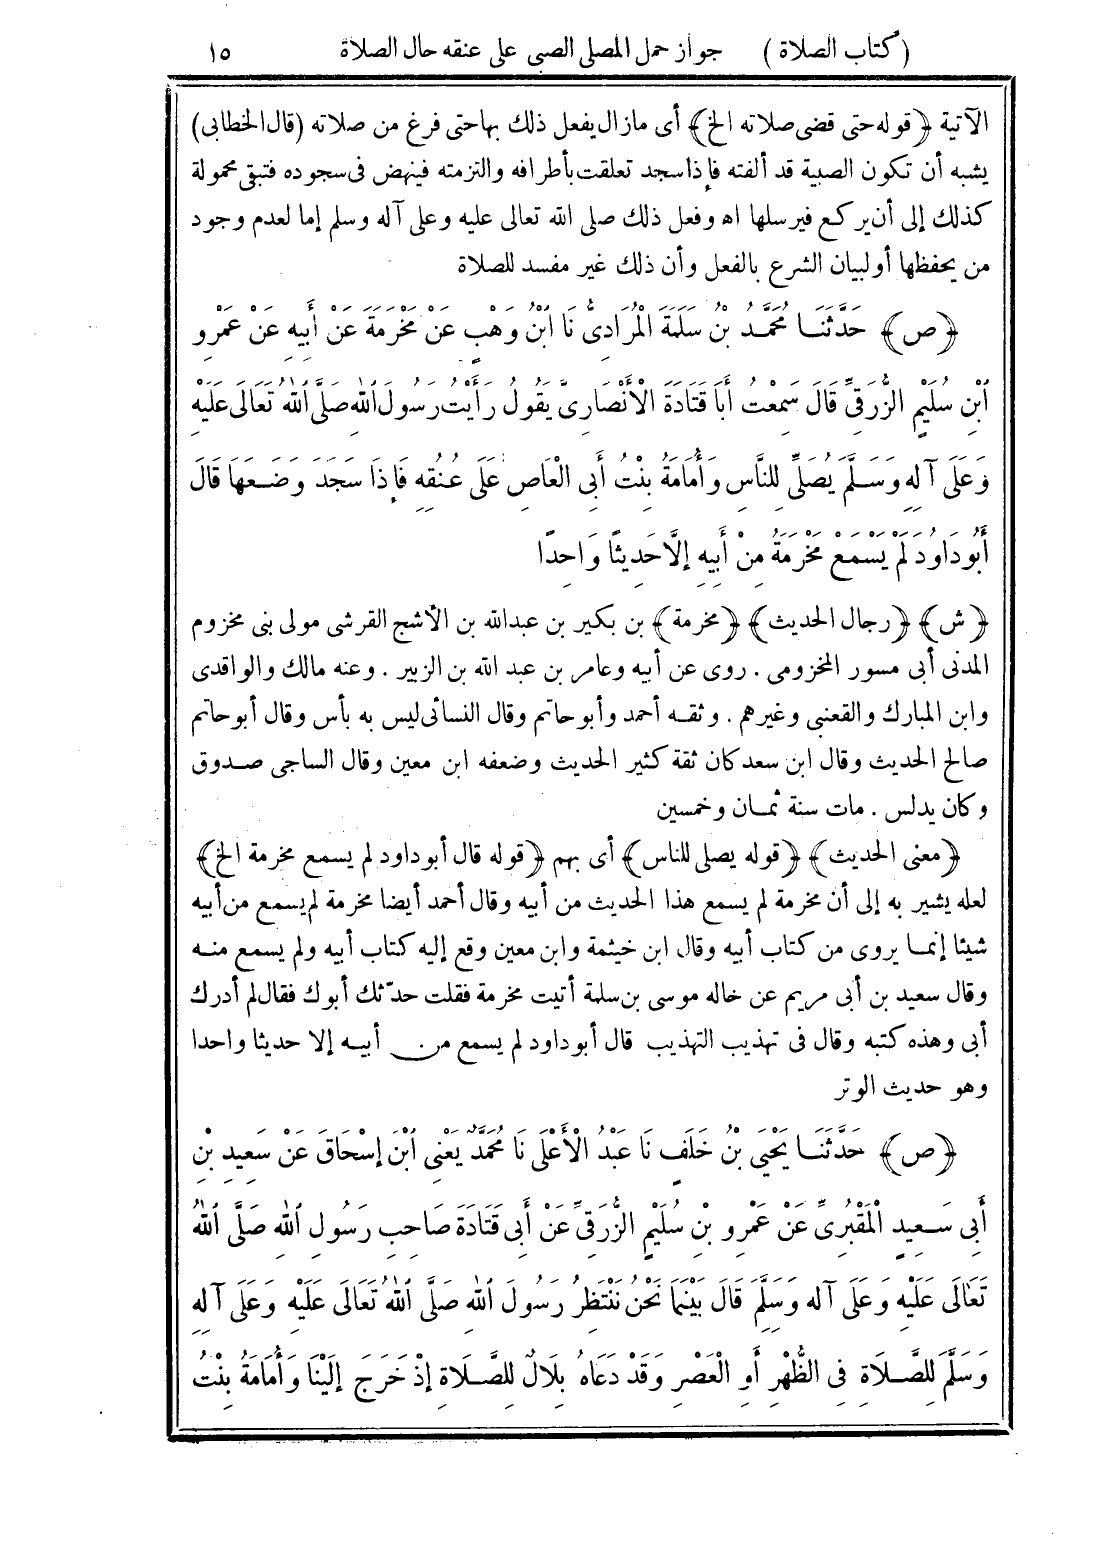 ( كتاب الصلاة ) جواز حمل المصلى الصبى على عنقه حال الصلاة ١٥
الآتية ﴿قوله حتى قضى صلاته الخ﴾ أى مازال يفعل ذلك بها حتى فرغ من صلاته (قال الخطابى)
يشبه أن تكون الصبية قد ألفته فإذا سجد تعلقت بأطرافه والتزمته فينهض فى سجوده فتبقى محمولة
كذلك إلى أن يركع فيرسلها اه وفعل ذلك صلى الله تعالى عليه وعلى آله وسلم إما لعدم وجود
من يحفظها أو لبيان الشرع بالفعل وأن ذلك غير مفسد للصلاة
﴿ص﴾ حَدَّثَنَا مُحَمَّدُ بْنُ سَلَمَةَ الْمُرَادِىُّ نَا ابْنُ وَهْبٍ عَنْ مَخْرَمَةَ عَنْ أَبِيهِ عَنْ عَمْرِو
ابْنِ سُلَيْمٍ الزُّرَقِىِّ قَالَ سَمِعْتُ أَبَا قَتَادَةَ الْأَنْصَارِىَّ يَقُولُ رَأَيْتُ رَسُولَ اللهِ صَلَّى اللهُ تَعَالَى عَلَيْهِ
وَعَلَى آلِهِ وَسَلَّمَ يُصَلِّى لِلنَّاسِ وَأُمَامَةُ بِنْتُ أَبِى الْعَاصِ عَلَى عُنُقِهِ فَإِذَا سَجَدَ وَضَعَهَا قَالَ
أَبُو دَاوُدَ لَمْ يَسْمَعْ مَخْرَمَةُ مِنْ أَبِيهِ إِلَّا حَدِيثًا وَاحِدًا
﴿ش﴾ ﴿رجال الحديث﴾ ﴿مخرمة﴾ بن بكير بن عبدالله بن الأشج القرشى مولى بنى مخزوم
المدنى أبى مسور المخزومى . روى عن أبيه وعامر بن عبد الله بن الزبير . وعنه مالك والواقدى
وابن المبارك والقعنبى وغيرهم . وثقه أحمد وأبو حاتم وقال النسائى ليس به بأس وقال أبو حاتم
صالح الحديث وقال ابن سعد كان ثقة كثير الحديث وضعفه ابن معين وقال الساجى صدوق
وكان يدلس . مات سنة ثمان وخمسين
﴿معنى الحديث﴾ ﴿قوله يصلى للناس﴾ أى بهم ﴿قوله قال أبو داود لم يسمع مخرمة الخ﴾
لعله يشير به إلى أن مخرمة لم يسمع هذا الحديث من أبيه وقال أحمد أيضا مخرمة لم يسمع من أبيه
شيئا إنما يروى من كتاب أبيه وقال ابن خيثمة وابن معين وقع إليه كتاب أبيه ولم يسمع منه
وقال سعيد بن أبى مريم عن خاله موسى بن سلمة أتيت مخرمة فقلت حدّثك أبوك فقال لم أدرك
أبى وهذه كتبه وقال فى تهذيب التهذيب قال أبو داود لم يسمع من أبيه إلا حديثا واحدا
وهو حديث الوتر
﴿ص﴾ حَدَّثَنَا يَحْيَى بْنُ خَلَفٍ نَا عَبْدُ الْأَعْلَى نَا مُحَمَّدٌ يَعْنِى ابْنَ إِسْحَاقَ عَنْ سَعِيدِ بْنِ
أَبِى سَعِيدٍ الْمَقْبُرِىِّ عَنْ عَمْرِو بْنِ سُلَيْمٍ الزُّرَقِىِّ عَنْ أَبِى قَتَادَةَ صَاحِبِ رَسُولِ اللهِ صَلَّى اللهُ
تَعَالَى عَلَيْهِ وَعَلَى آلِهِ وَسَلَّمَ قَالَ بَيْنَمَا نَحْنُ نَنْتَظِرُ رَسُولَ اللهِ صَلَّى اللهُ تَعَالَى عَلَيْهِ وَعَلَى آلِهِ
وَسَلَّمَ لِلصَّلَاةِ فِى الظُّهْرِ أَوِ الْعَصْرِ وَقَدْ دَعَاهُ بِلَالٌ لِلصَّلَاةِ إِذْ خَرَجَ إِلَيْنَا وَأُمَامَةُ بِنْتُ